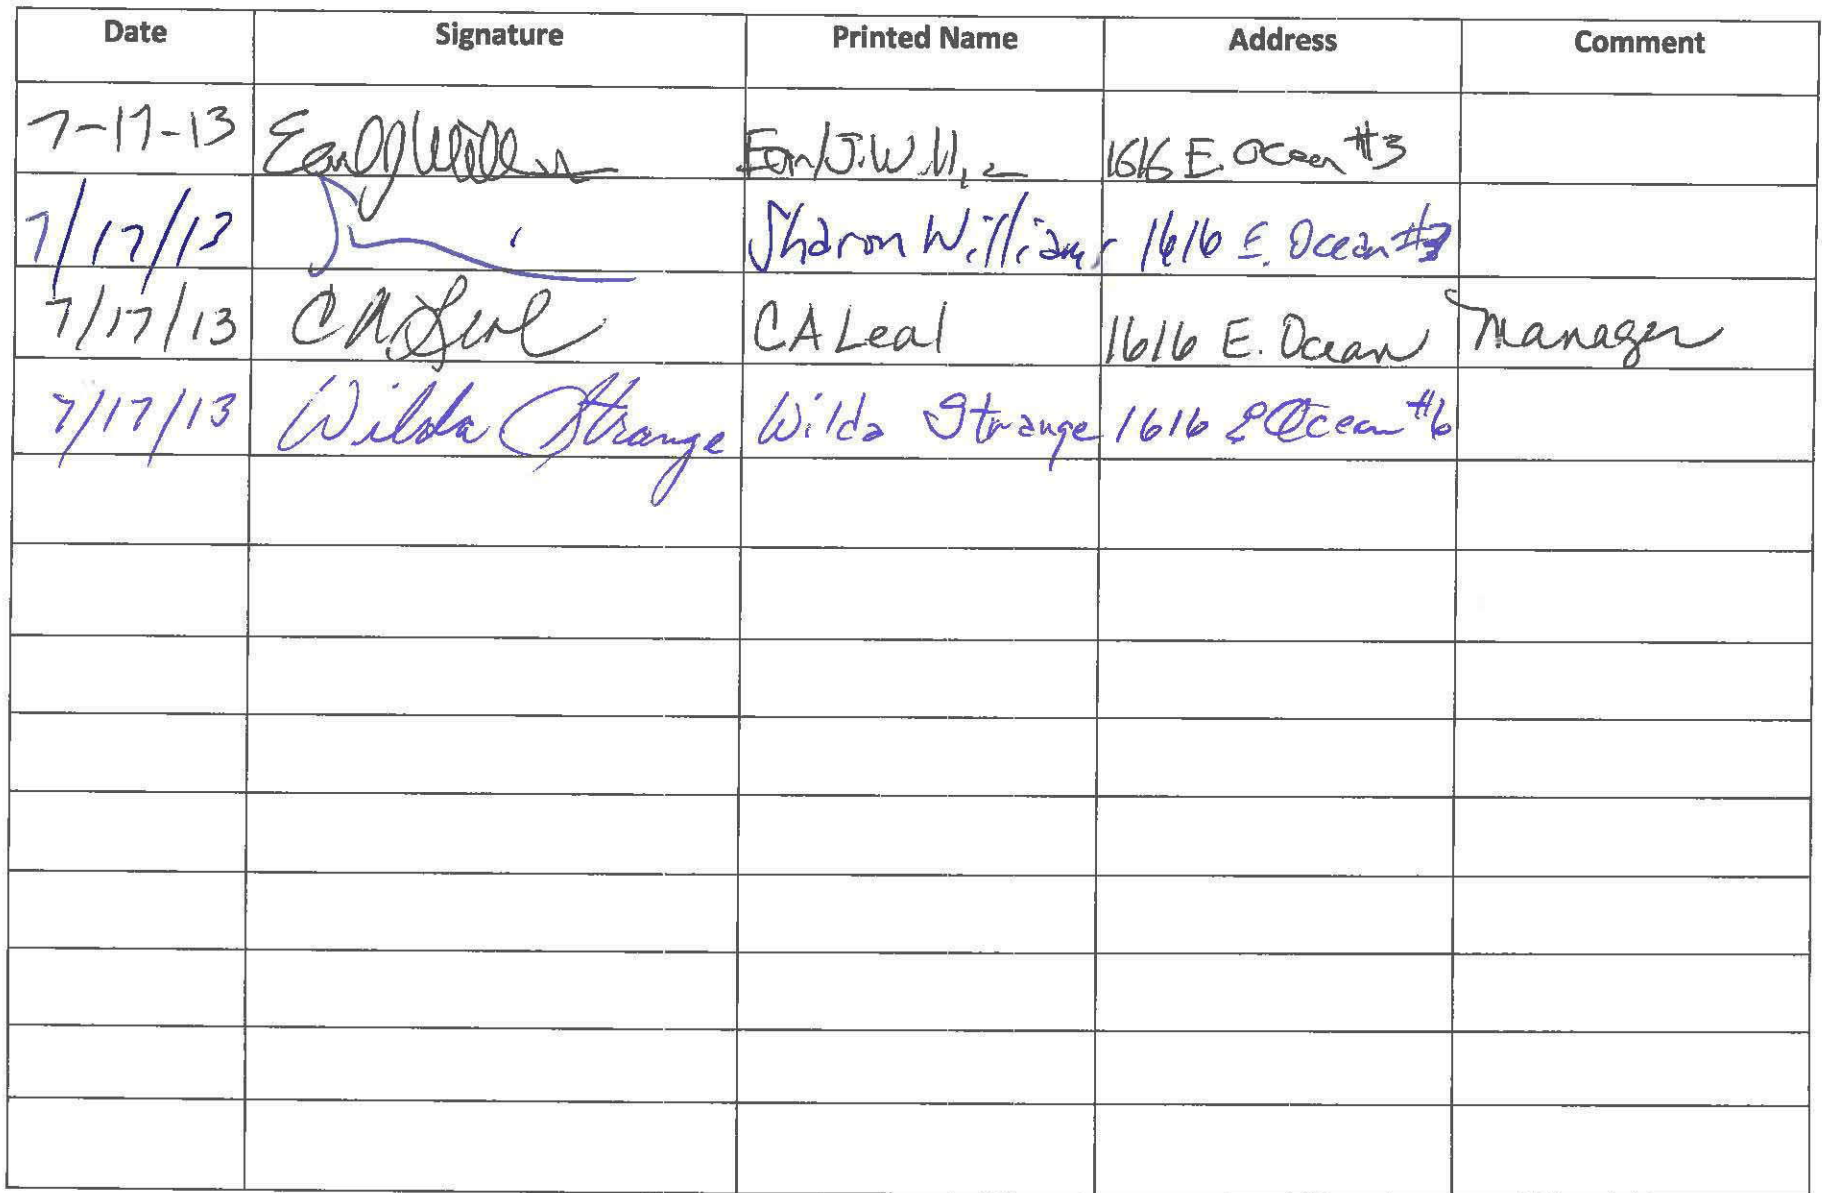 Date Signature Printed Name Address Comment
7-17-13 Earl J. 1616 E. Ocean #3
7/17/13 Sharon Williams 1616 E. Ocean #3
7/17/13 C A Leal CA Leal 1616 E. Ocean Manager
7/17/13 Wilda Strange Wilda Strange 1616 E Ocean #6